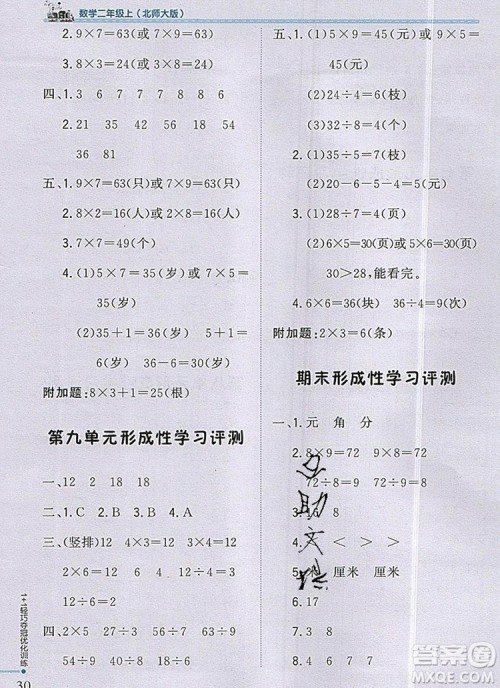 数学二年级上(北师大版)
2.9×7=63(或7×9=63)
3×8=24(或8×3=24)
四、1.3 6 7 7 8 8 6
2.21 54 45 18 9 54
36 81
五、1.9×7=63(只) 7×9=63(只)
2.8×2=16(人) 2×8=16(人)
3.7×7=49(个)
4.(1)5×7=35(岁) 7×5=
35(岁)
(2)35+1=36(岁) 5+1=
6(岁) 36÷6=6
附加题:8×3+1=25(根)
第九单元形成性学习评测
一、12 2 18 18
二、1.C 2.B 3.B 4.A
三、(竖排) 12 4×3=12 3×4=12
2×6=12 6×2=12 12÷2=6
12÷6=2
四、2×5 5×7 3×9 6×8
54÷9 30÷6 40÷8 49÷7
1+1轻巧夺冠优化训练
30
五、1.(1)5×9=45(元) 9×5=
45(元)
(2)24÷4=6(枝)
(3)24÷6=4(个)
2.(1)30÷5=6
(2)20-6-5-4=5(只)
3.(1)24÷3=8
(2)6×5=30(页) 5×6=30(页)
30>28,能看完。
4.6×6=36(块) 36÷4=9(次)
附加题:2×3=6(条)
期末形成性学习评测
一、1.元 角 分
2.8×9=72 9×8=72
72÷8=9 72÷9=8
8
< > >
厘米 厘米
6.17
7.3 8 3 8